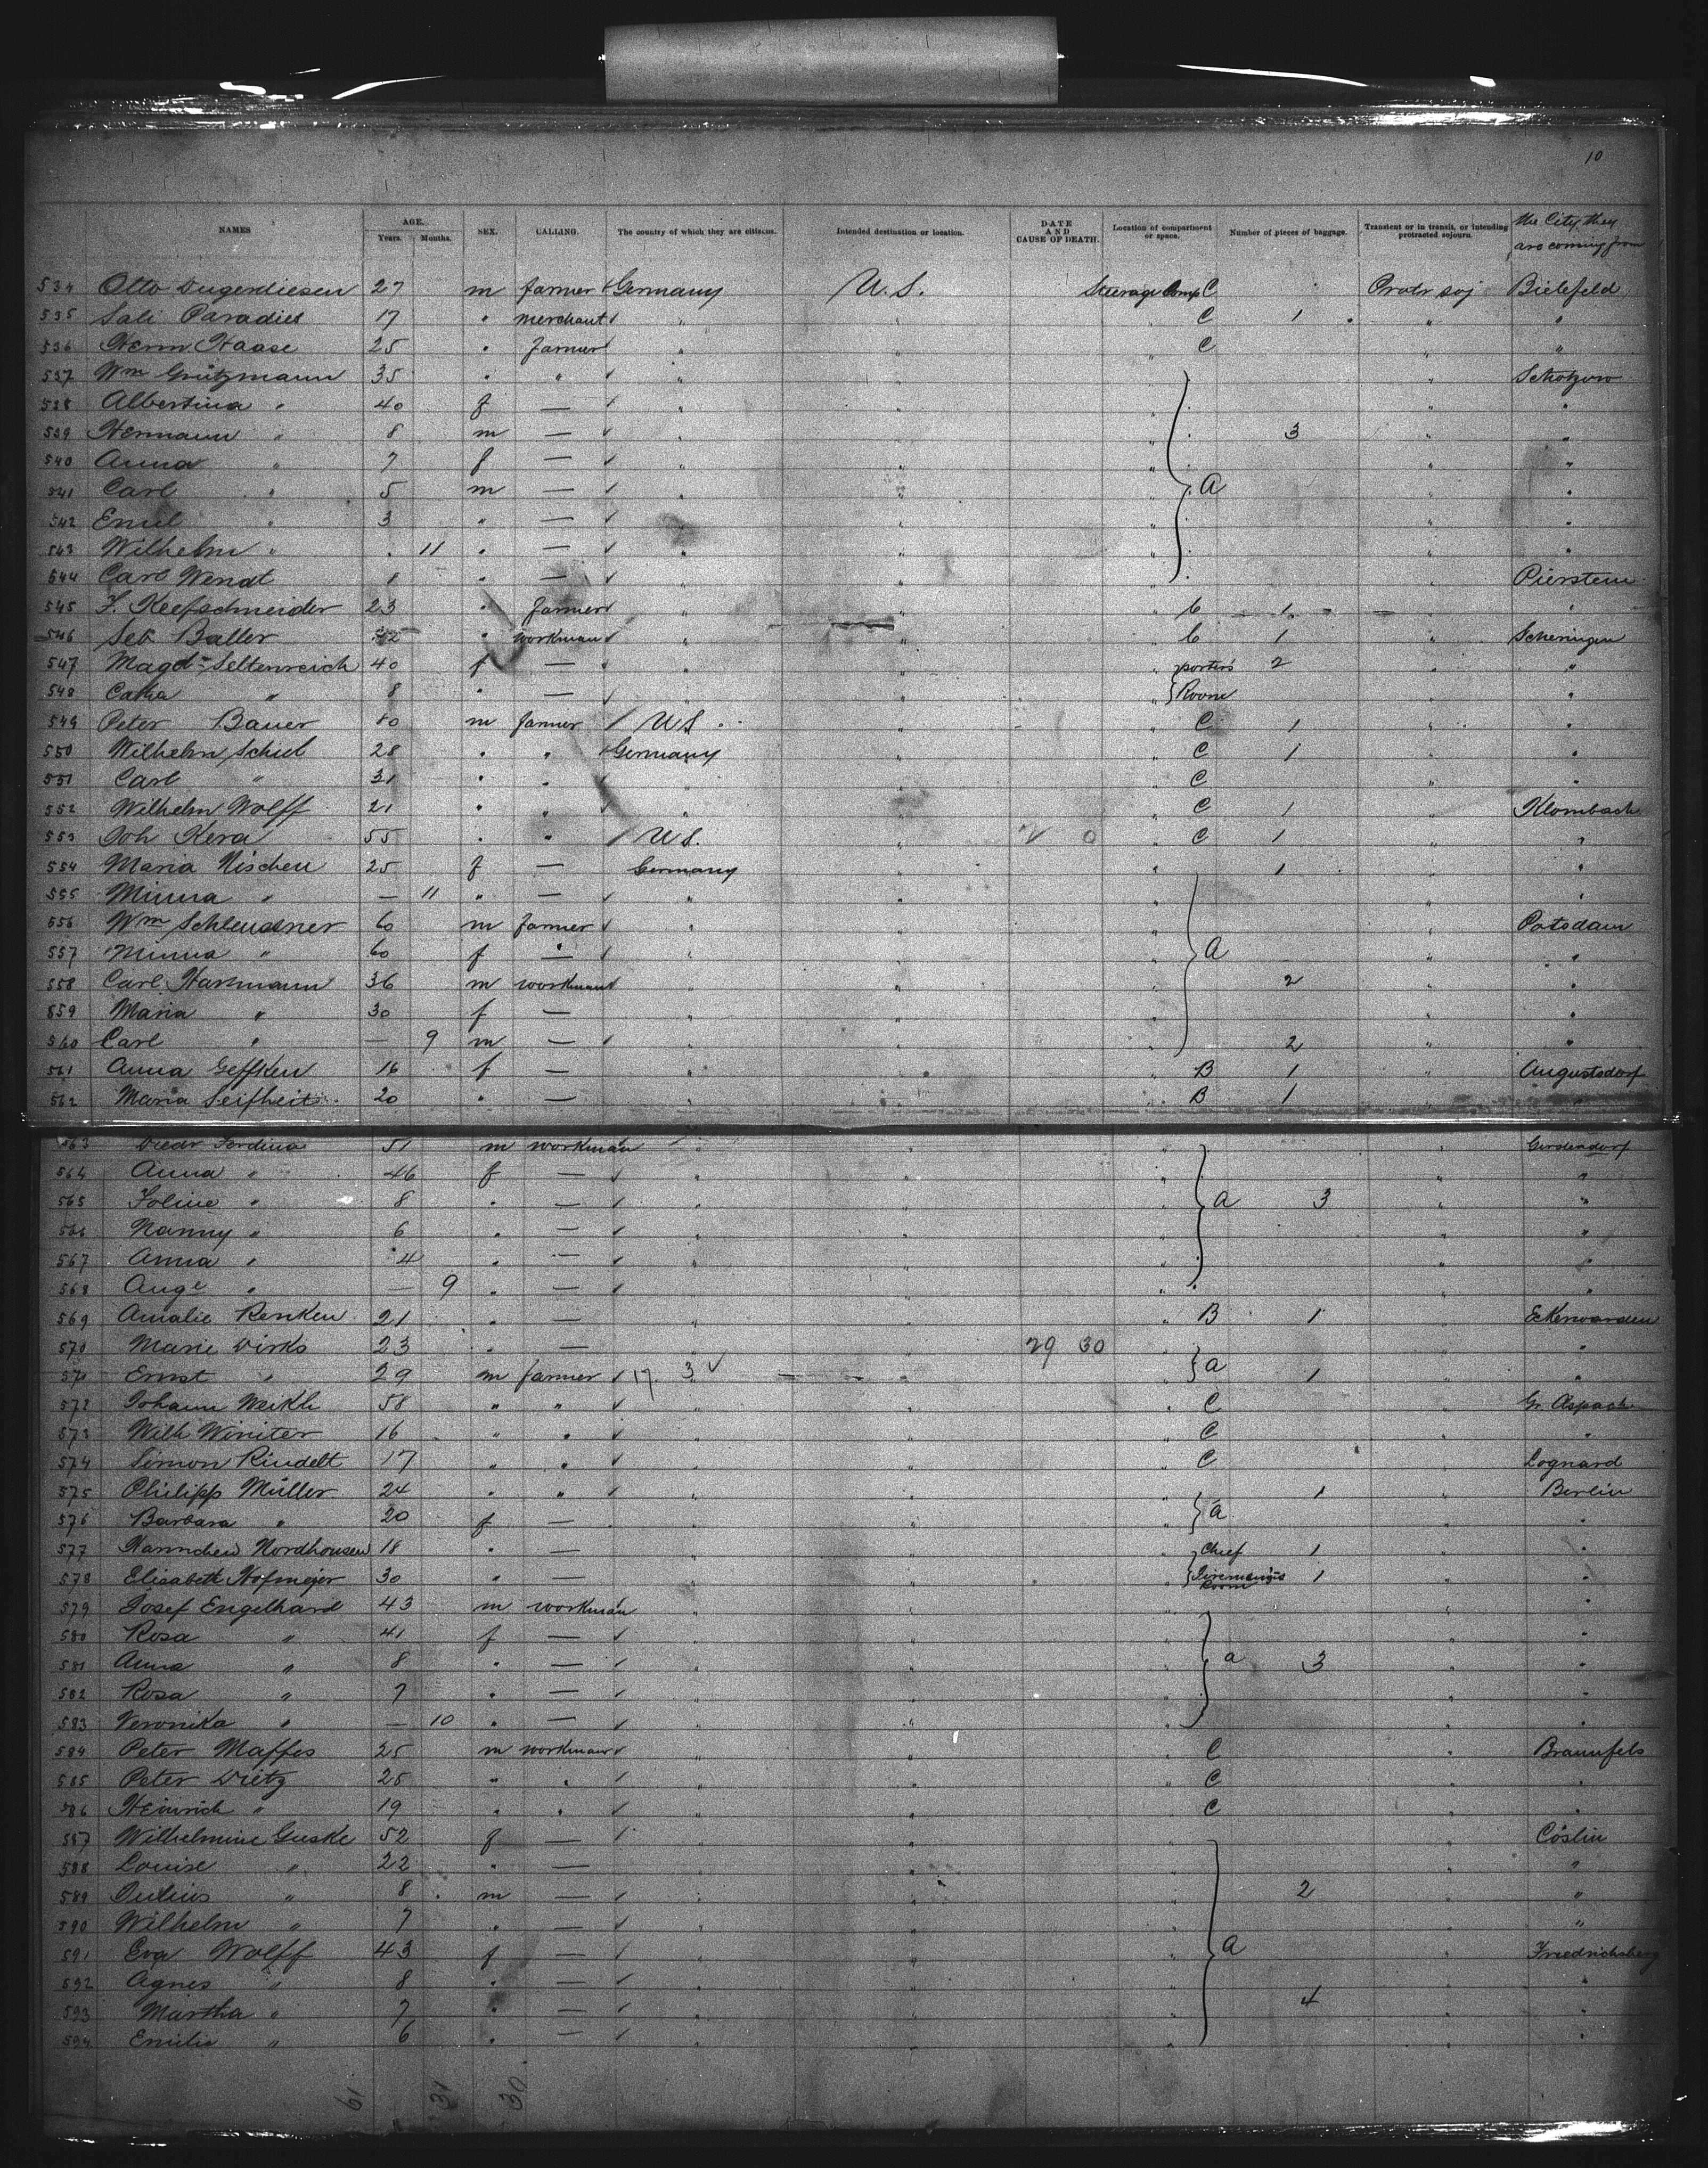 10
NAMES AGE. Years. Months. SEX. CALLING. The country of which they are citizens. Intended destination or location. DATE AND CAUSE OF DEATH. Location of compartment or space. Number of pieces of baggage. Transient or in transit, or intending protracted sojourn. the City they are coming from
534 Otto 27 m farmer Germany U.S. Steerage Comp C Protr soj Bielefeld
535 Sali Paradies 17 " merchant " " " C 1 " "
536 Herm. Haase 25 " farmer " " " C " "
537 Wm Grützmann 35 " " " " " "
538 Albertina " 40 f — " " " " "
539 Hermann " 8 m — " " " 3 " "
540 Anna " 7 f — " " " " "
541 Carl " 5 m — " " " A " "
542 Emil " 3 " — " " " " "
543 Wilhelm " . 11 " — " " " " "
544 Carl Wendt " — " " " "
545 F. Keefschneider 23 " farmer " " " C 1 "
546 Seb Baller " workman " " " C 1 " Scheringen
547 Magd. Seltenreich 40 f — " " " porters 2 " "
548 " 8 " — " " " Room " "
549 Peter Bauer m farmer U S. " " C 1 " "
550 Wilhelm Schub 28 " " Germany " " C 1 " "
551 Carl " 31 " " " " " C " "
552 Wilhelm Wolff 21 " " " " " C 1 " Klombach
553 Joh Kera 55 " " U S. " 2 0 " C 1 " "
554 Maria Nischen 25 f — Germany " " 1 " "
555 Minna " — 11 " — " " " " "
556 Wm Schleusner 60 m farmer " " " " Potsdam
557 Minna " 60 f — " " " A " "
558 Carl Harmann 36 m workman " " " 2 " "
559 Maria " 30 f — " " " " "
560 Carl " — 9 m — " " " 2 " "
561 Anna Geffken 16 f — " " " B 1 " Augustsdorf
562 Maria Seifheit 20 " — " " " B 1 " "
563 51 m workman " " " "
564 Anna " 46 f — " " " " "
565 Foline " 8 " — " " " a 3 " "
566 Nanny " 6 " — " " " " "
567 Anna " 4 " — " " " " "
568 Auge " — 9 " — " " " " "
569 Amalie Renken 21 " — " " " B 1 " Eckerwarden
570 Marie Dirks 23 " — " " 29 30 " " "
571 Ernst " 29 m farmer 17 3 " " a 1 " "
572 Johann Weikh 58 " " " " " C " Gr. Aspach
573 Wilh Winiter 16 " " " " " C " "
574 Simon Rindelt 17 " " " " " C " Lognard
575 Philipp Müller 24 " " " " " 1 " Berlin
576 Barbara " 20 f — " " " a " "
577 Hannchen Nordhousen 18 " — " " " Chief 1 " "
578 Elisabeth Hofmejer 30 " — " " " Firemen's Room 1 " "
579 Josef Engelhard 43 m workman " " " " "
580 Rosa " 41 f — " " " " "
581 Anna " 8 " — " " " a 3 " "
582 Rosa " 7 " — " " " " "
583 Veronika " — 10 " — " " " " "
584 Peter Maffes 25 m workman " " " C " Braunfels
585 Peter Dietz 25 " " " " " C " "
586 Heinrich " 19 " " " " " C " "
587 Wilhelmine Guske 52 f — " " " " Cöslin
588 Louise " 22 " — " " " " "
589 Julius " 8 m — " " " 2 " "
590 Wilhelm " 7 " — " " " " "
591 Eva Wolff 43 f — " " " A " Friedrichsberg
592 Agnes " 8 " — " " " " "
593 Martha " 7 " — " " " 4 " "
594 Emilie " 6 " — " " " " "
61 31 30